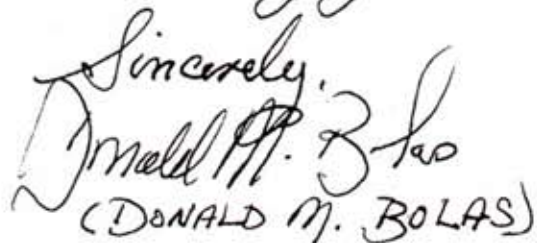 Sincerely,
Donald M. Bolas
(DONALD M. BOLAS)